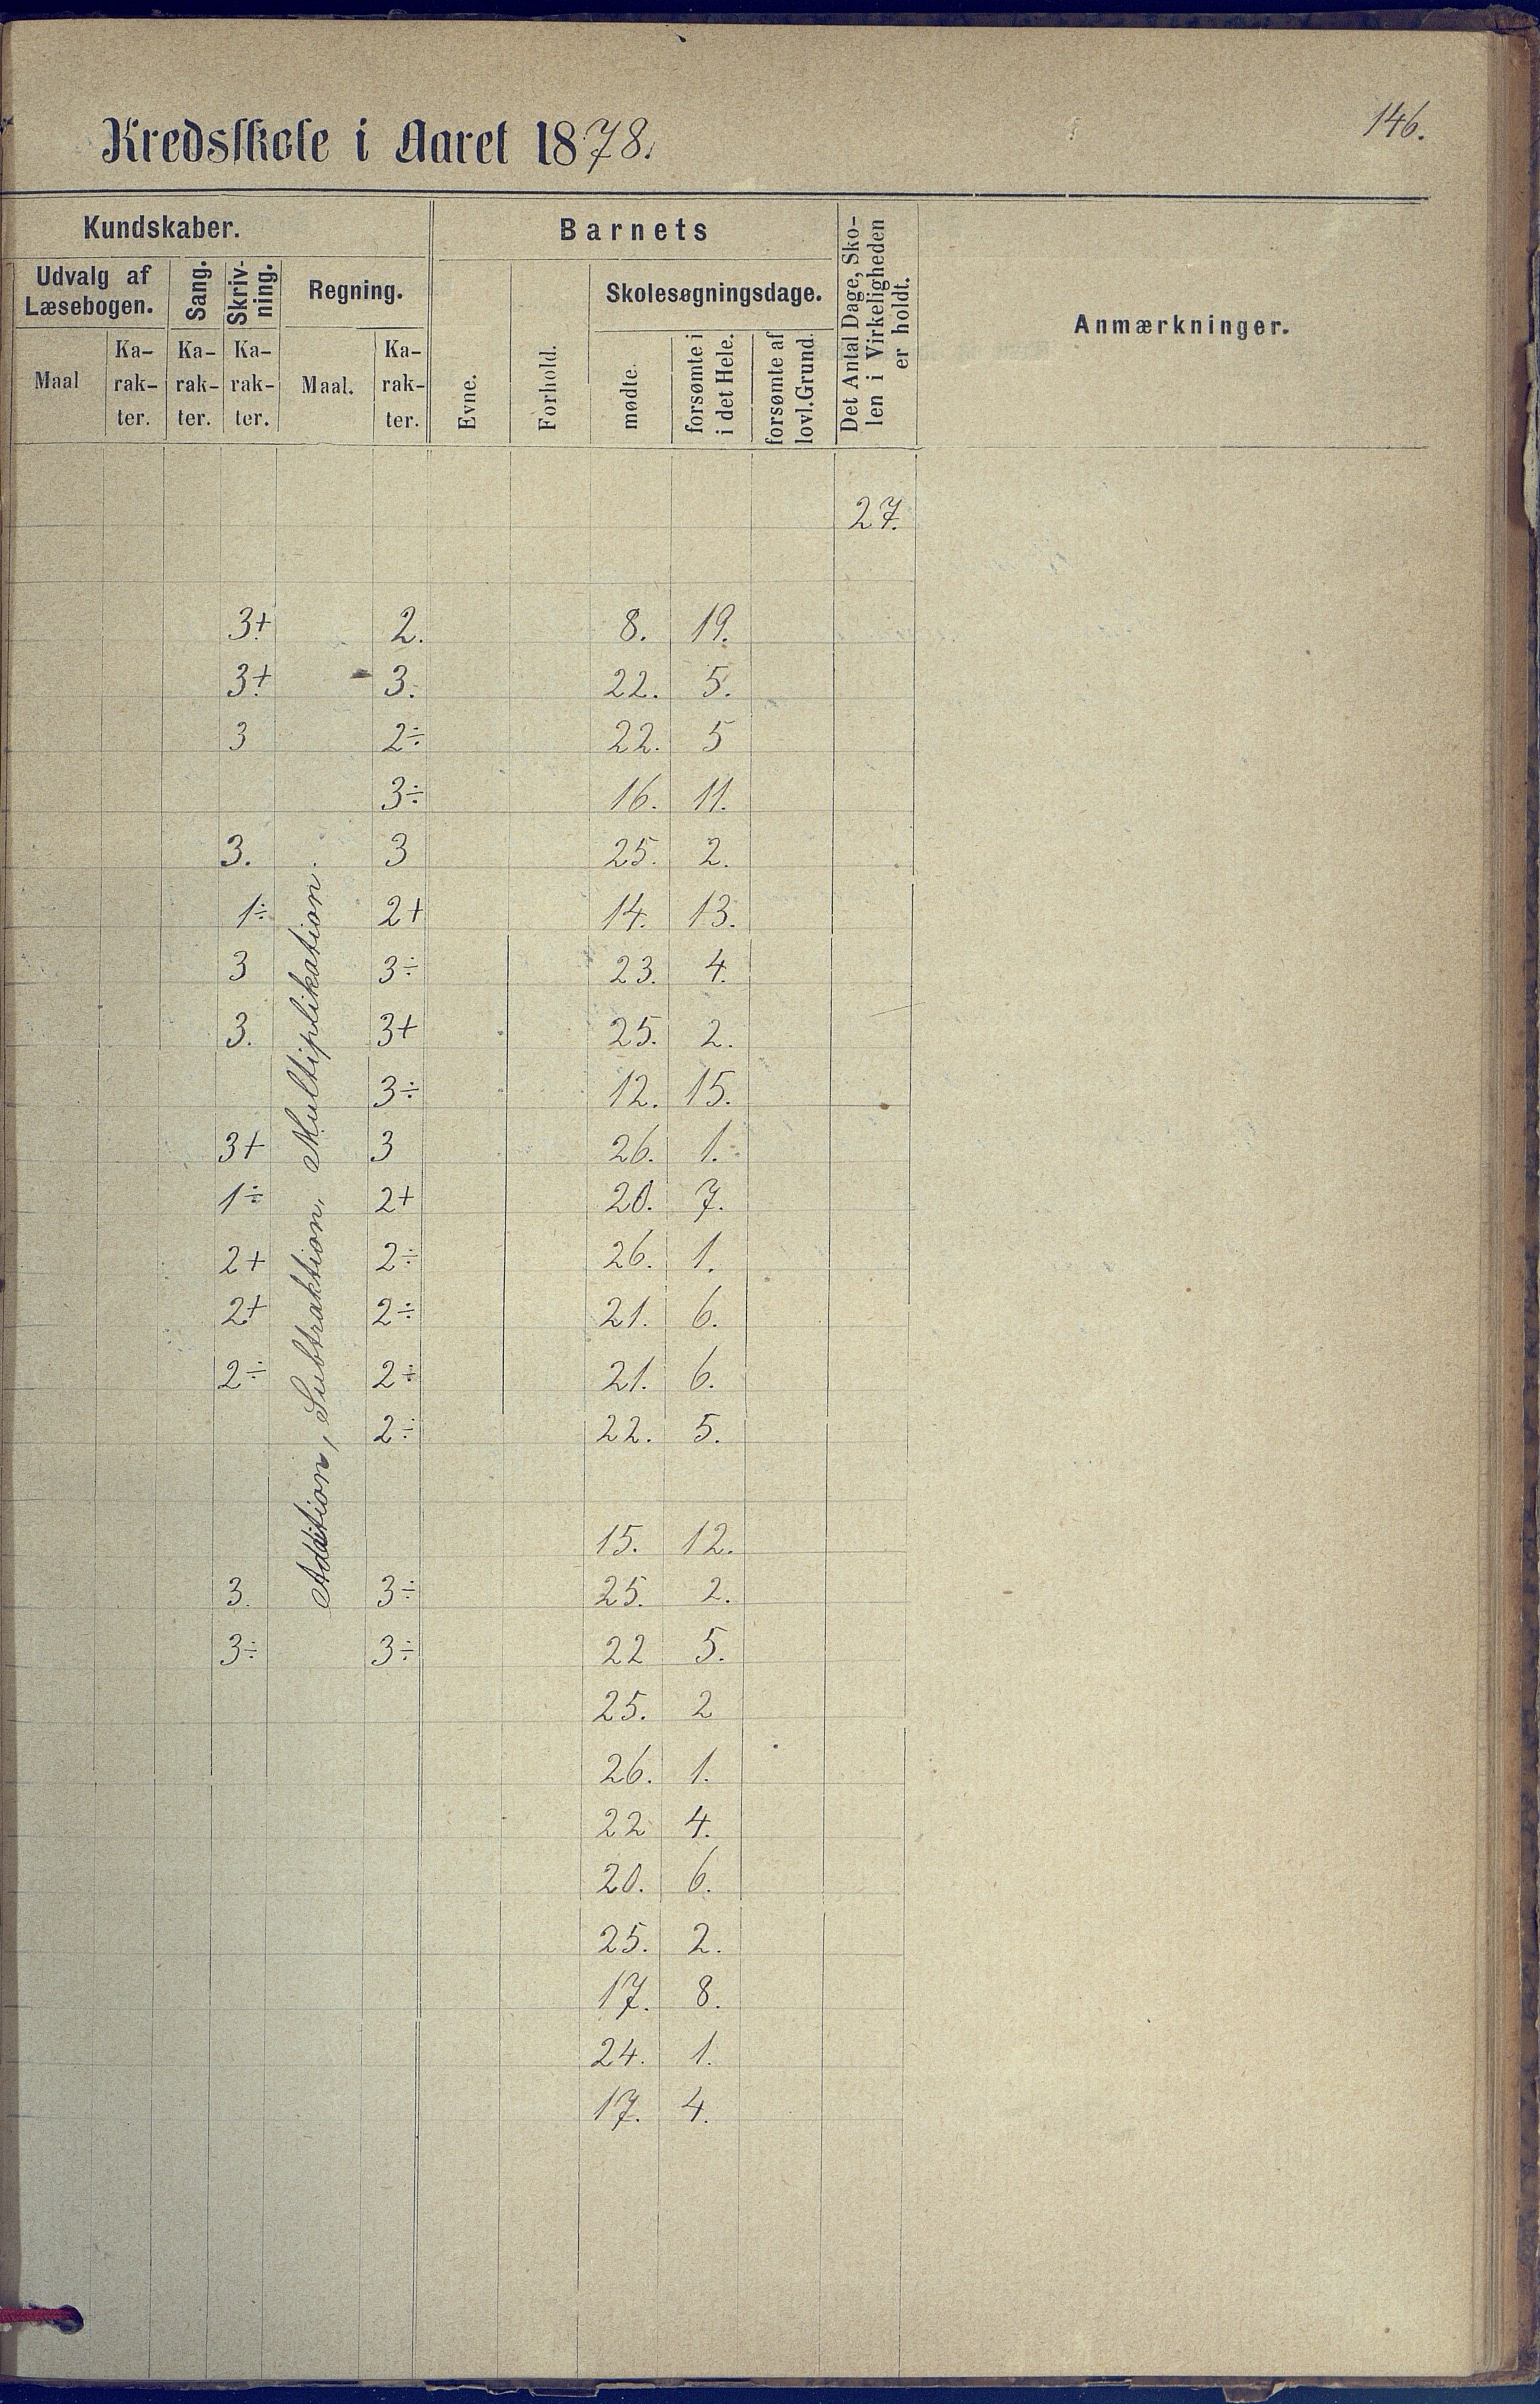 146.
Kredsskole i Aaret 1878.
Kundskaber.
Barnets
Det Antal Dage, Sko-
len i Virkeligheden
er holdt.
Anmærkninger.
Udvalg af
Læsebogen.
Sang.
Skriv-
ning.
Regning.
Skolesøgningsdage.
Maal
Ka-
rak-
ter.
Ka-
rak-
ter.
Ka-
rak-
ter.
Maal.
Ka-
rak-
ter.
Evne.
Forhold.
mødte.
forsømte i
i det Hele.
forsømte af
lovl. Grund.
27.
Addition, Subtraktion, Multiplikation.
3+ 2. 8. 19.
3+ 3. 22. 5.
3 2÷ 22. 5
3÷ 16. 11.
3. 3 25. 2.
1÷ 2+ 14. 13.
3 3÷ 23. 4.
3. 3+ 25. 2.
3÷ 12. 15.
3+ 3 26. 1.
1÷ 2+ 20. 7.
2+ 2÷ 26. 1.
2+ 2÷ 21. 6.
2÷ 2÷ 21. 6.
2÷ 22. 5.
15. 12.
3. 3÷ 25. 2.
3÷ 3÷ 22 5.
25. 2
26. 1.
22 4.
20. 6.
25. 2.
17. 8.
24. 1.
17. 4.